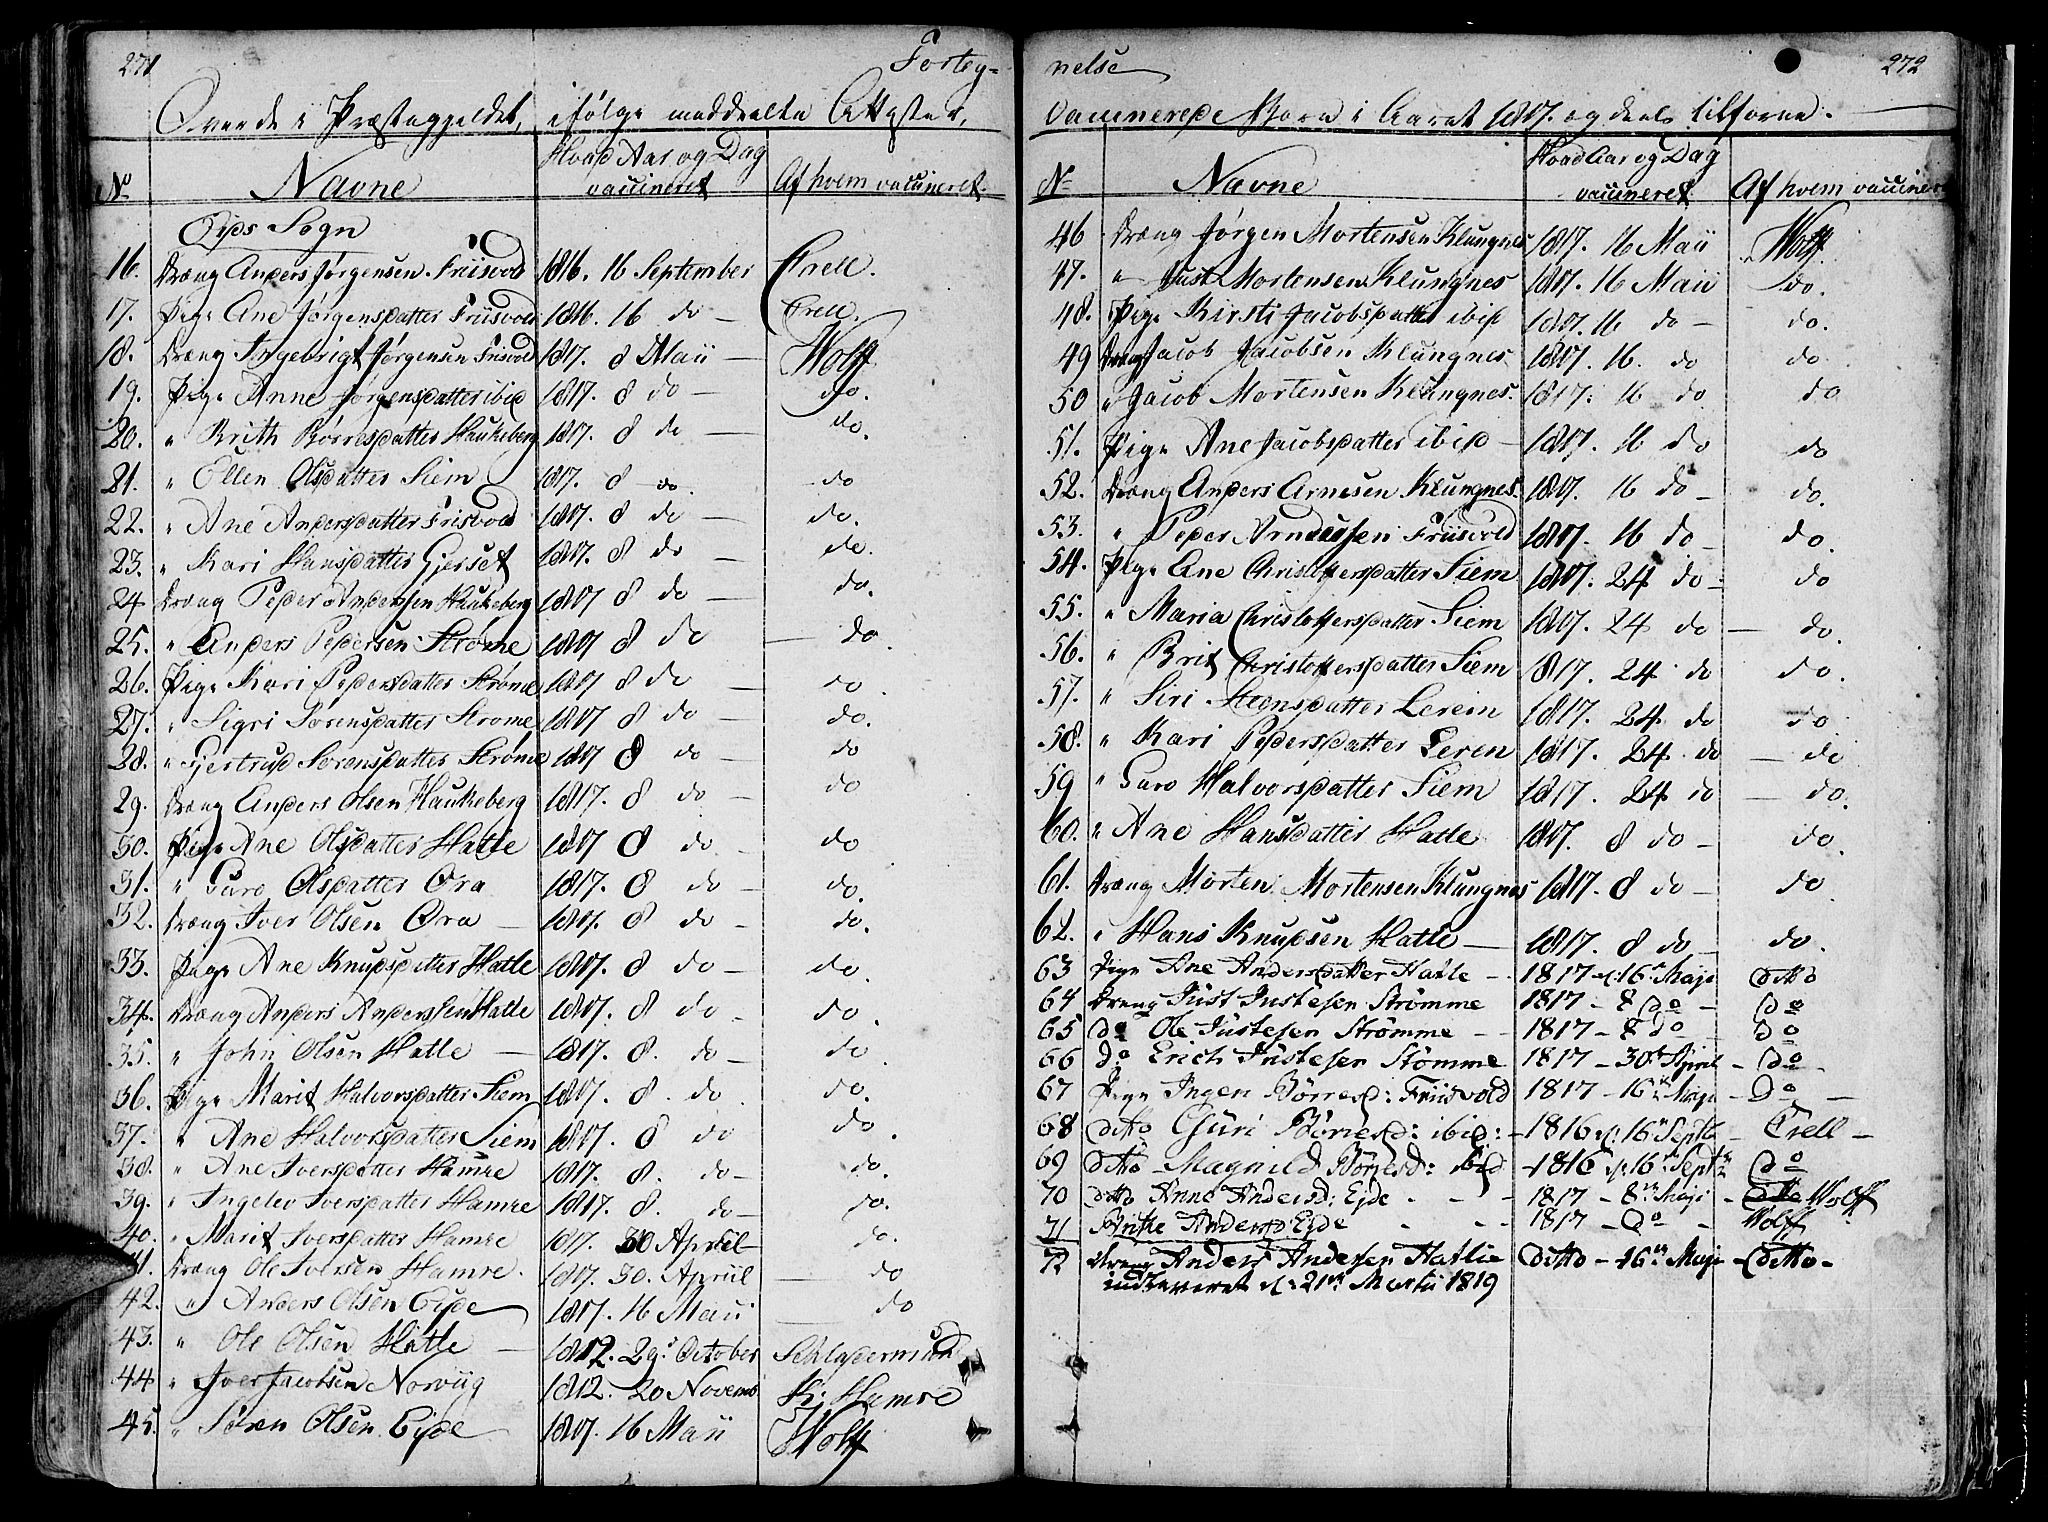 271
Forteg-
Over de i Præstegjeldet, ifølge meddeelte Attester,
No
Navne
Hvad Aar og Dag vaccineret
Af hvem vaccineret.
Eids Sogn
16. Dræng Anders Jørgensen Friisvold 1816. 16 September Crell.
17. Pige Ane Jørgensdatter Friisvold 1816. 16 do — Crell.
18. Dræng Ingebrigt Jørgensen Frisvold 1817. 8 Maii — Wolff
19. Pige Anne Jørgensdatter ibid 1817. 8 do — do.
20. " Brith Børresdatter Haukeberg 1817. 8 do — do.
21. " Ellen Olsdatter Siem 1817. 8 — do. — do
22. " Ane Andersdatter Frisvold 1817. 8 do — do.
23. " Kari Hansdatter Gjerset 1817. 8 do — do.
24 Dræng Peder Anderssen Haukeberg 1817 8 do — do.
25. " Anders Pedersen Strøme 1817 8 do — do.
26. Pige Kari Pedersdatter Strøme 1817 8 do — do.
27. " Sigri Sørensdatter Strøme 1817 8 do — do.
28. " Gjertrud Sørensdatter Strøme 1817 8 do do
29. Dræng Anders Olsen Haukeberg 1817. 8 do — do
30. Pige Ane Olsdatter Hatle 1817 8 do — do
31. " Guro Olsdatter Ora 1817. 8 do — do.
32. Dræng Iver Olsen Ora — 1817. 8 do — do.
33. Pige Ane Knudsdatter Hatle 1817. 8 do — do.
34. Dræng Anders Anderssen Hatle 1817. 8 do — do.
35. " John Olsen Hatle — 1817. 8. do — do.
36. Pige Marit Halvorsdatter Siem 1817. 8. do. do.
37. " Ane Halvorsdatter Siem 1817. 8 do do.
38. " Ane Iversdatter Hamre 1817. 8. do — do.
39. " Ingelev Iversdatter Hamre 1817. 8. do — do.
40. " Marit Iversdatter Hamre 1817. 30 April — do.
41. Dræng Ole Iversen Hamre. 1817. 30. Apriil — do
42. " Anders Olsen Eide 1817. 16 Maii — do
43. " Ole Olsen Hatle — 1812. 29. October
44 " Iver Jacobsen Norviig 1812. 20 Novemb K: Hamre
45. " Søren Olsen Eide 1817. 16 Maii Wolff
nelse
272
vaccinerede Børn i Aaret 1817. og deels tilforne.
No
Navne
Hvad Aar og Dag vaccineret
Af hvem vaccineret
46 Dræng Jørgen Mortensen Klungnes 1817. 16 Maii Wolff
47. " Just Mortensen Klungnes 1817. 16 Maii do.
48. Pige Kirsti Jacobsdatter ibid 1817. 16 do — do.
49 Dræng Jacob Jacobsen Klungnes 1817. 16. do do
50 " Jacob Mortensen Klungnes. 1817. 16 do do
51. Pige Ane Jacobsdatter ibid — 1817. 16 do do
52. Dræng Anders Arnesen Klungnes. 1817. 16 do — do.
53. " Peder Friisvold 1817. 16 do — do.
54. Pige Ane Christoffersdatter Siem 1817. 24 do — do
55. " Maria Christoffersdatter Siem 1817. 24 do — do.
56. " Brit Christoffersdatter Siem 1817. 24 do do.
57. " Siri Steensdatter Lerein 1817. 24 do do
58. " Kari Pedersdatter Leren 1817. 24. do — do
59 " Guro Halvorsdatter Siem 1817. 24 do — do.
60. " Ane Hansdatter Hatle 1817. 8 do — do.
61. Dræng Morten Mortensen Klungnes 1817. 8 do — do
62. " Hans Knudsen Hatle — 1817. 8 do — do.
63 Pige Ane Andersdatter Hatle - 1817 - d: 16de Maji ditto
64 Dreng Just Justesen Strømme 1817 - 8 do - do
65 do Ole Justesen Strømme - - 1817 - 8 do - do
66 do Erich Justesen Stømme 1817 - 30te April - do -
67 Pige Ingen Børresd: Friisvold 1817 - 16de Maji - do —
68 ditto Guri Børresd: ibid: - 1816 d: 16de Septb - Crell —
69 ditto - Magnild Børresd: ibid - 1816 d: 16de Septbr do
70 ditto Anne Andersd: Eide - - - 1817 - 8de Maji - ditto Wolff
71 Andersd: Eide - - 1817 - do - Wolff
72 Dreng Anders Andersen Hatlie ditto - 16de Maji - ditto -
indleveret d: 21de Martii 1819